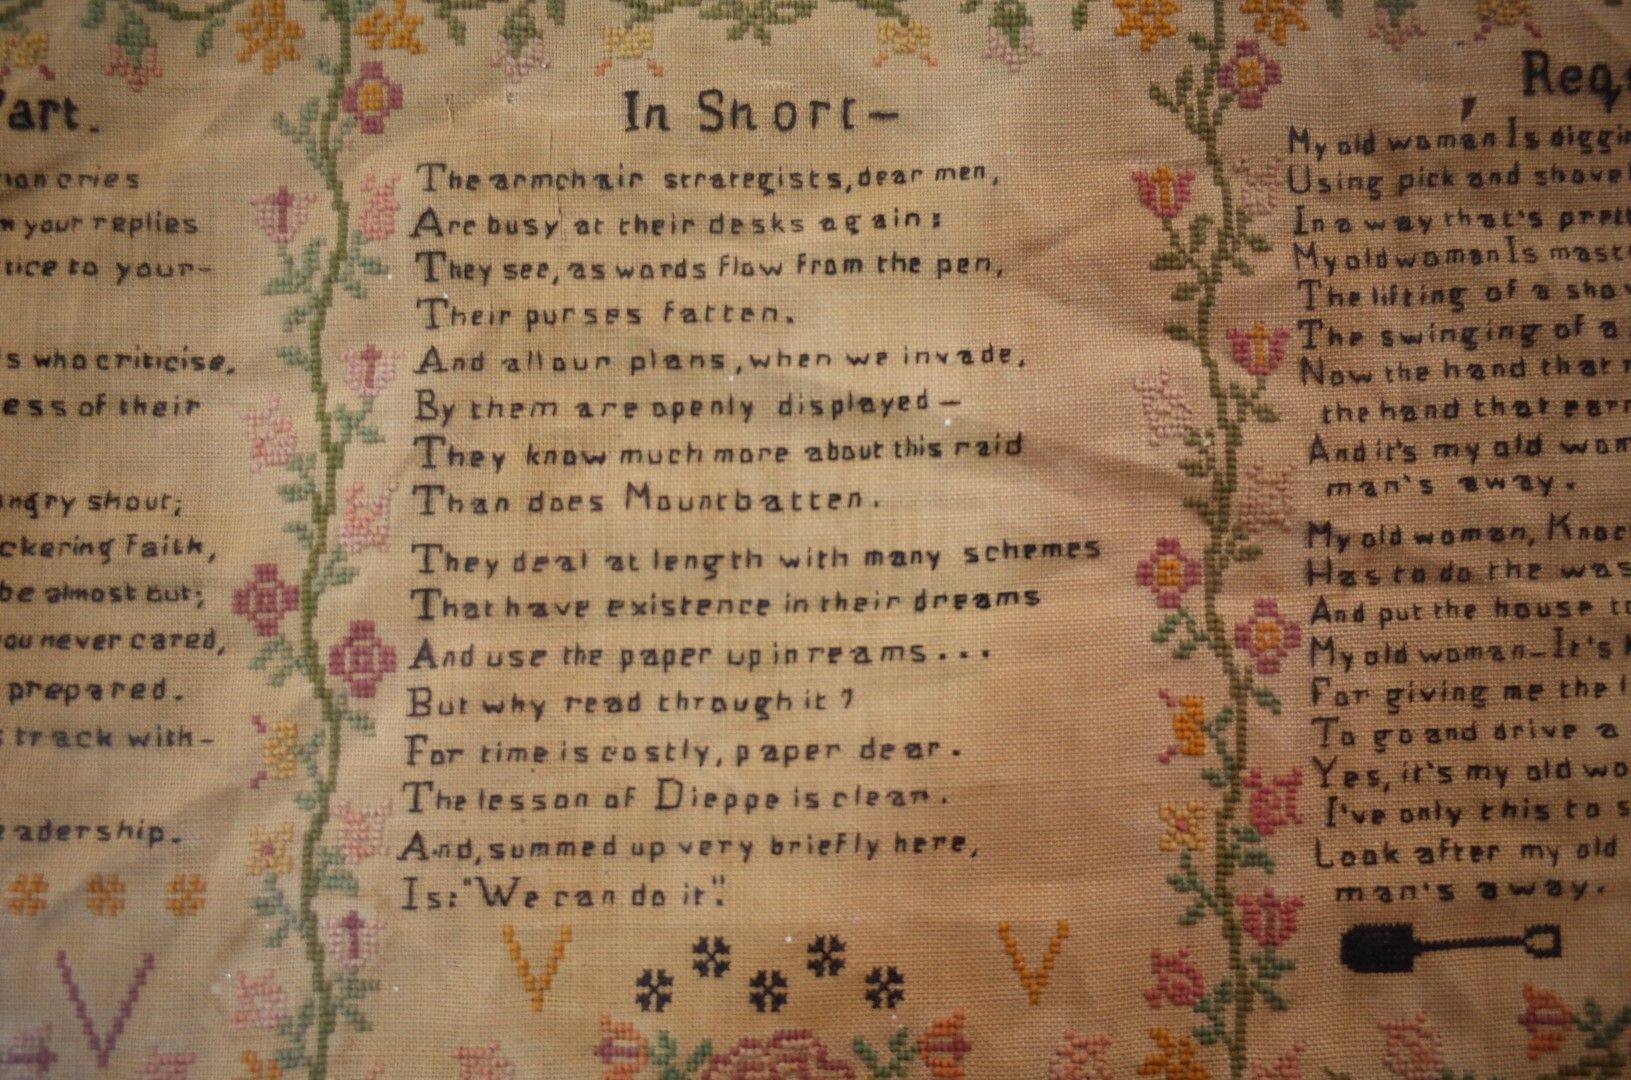 art.
cries
your replies
tice to your-
s who criticise,
ess of their
ngry shout;
ckering Faith,
be almost out;
ou never cared,
prepared.
track with-
eadership.
In Short-
The armchair strategists, dear men,
Are busy at their desks again:
They see, as words flow from the pen,
Their purses fatten.
And all our plans, when we invade,
By them are openly displayed-
They know much more about this raid
Than does Mountbatten.
They deal at length with many schemes
That have existence in their dreams
And use the paper up in reams...
But why read through it?
For time is costly, paper dear.
The lesson of Dieppe is clear.
And, summed up very briefly here,
Is: "We can do it".
Req
My old woman Is diggi
Using pick and shovel
In a way that's prett
My old woman Is mast
The lifting of a shov
The swinging of a
Now the hand that r
the hand that earn
And it's my old wom
man's away.
My old woman, Knoc
Has to do the was
And put the house to
My old woman-It's
For giving me the l
To go and drive a
Yes, it's my old wo
I've only this to s
Look after my old
man's away.